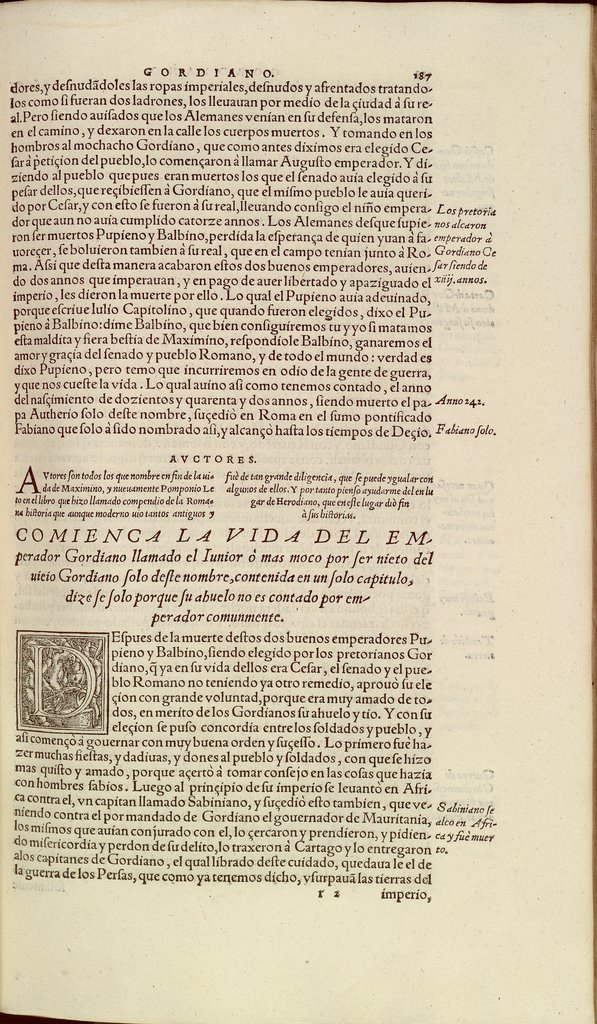 GORDIANO. 187
dores, y desnudãdoles las ropas imperiales, desnudos y afrentados tratando-
los como si fueran dos ladrones, los lleuauan por medio de la çiudad à su re-
al. Pero siendo auisados que los Alemanes venían en su defensa, los mataron
en el camino, y dexaron en la calle los cuerpos muertos. Y tomando en los
hombros al mochacho Gordíano, que como antes díximos era elegido Ce-
sar à petiçíon del pueblo, lo començaron à llamar Augusto emperador. Y di-
ziendo al pueblo que pues eran muertos los que el senado auia elegido à su
pesar dellos, que reçibiessen à Gordiano, que el mismo pueblo le auia queri-
do por Cesar, y con esto se fueron à su real, lleuando consigo el niño empera-
dor que aun no auia cumplido catorze annos. Los Alemanes desque supie-
ron ser muertos Pupieno y Balbino, perdida la esperança de quien yuan à fa-
uoreçer, se boluieron tambien à su real, que en el campo tenían junto à Ro-
ma. Assi que desta manera acabaron estos dos buenos emperadores, auien-
do dos annos que imperauan, y en pago de auer libertado y apaziguado el
imperio, les dieron la muerte por ello. Lo qual el Pupieno auia adeuinado,
porque escriue Iulio Capitolino, que quando fueron elegidos, dixo el Pu-
pieno à Balbino: dime Balbino, que bien consiguiremos tu y yo si matamos
esta maldita y fiera bestia de Maximino, respondiole Balbino, ganaremos el
amor y graçia del senado y pueblo Romano, y de todo el mundo: verdad es
dixo Pupieno, pero temo que incurriremos en odio de la gente de guerra,
y que nos cueste la vida. Lo qual auino asi como tenemos contado, el anno
del nasçimiento de dozientos y quarenta y dos annos, siendo muerto el pa-
pa Autherio solo deste nombre, suçediò en Roma en el sumo pontificado
Fabiano que solo à sido nombrado asi, y alcançò hasta los tiempos de Deçio.
Los pretoria
nos alcaron
emperador à
Gordiano Ce
sar siendo de
xiiij. annos.
Anno 242.
Fabiano solo.
AVCTORES.
AVtores son todos los que nombre en fin de la ui-
da de Maximino, y nueuamente Pomponio Le
to en el libro que hizo llamado compendio de la Roma-
na historia que aunque moderno uio tantos antiguos y
fuè de tan grande diligencia, que se puede ygualar con
algunos de ellos. Y por tanto pienso ayudarme del en lu
gar de Herodiano, que en este lugar diò fin
à sus historias.
COMIENCA LA VIDA DEL EM-
perador Gordiano llamado el Iunior ò mas moco por ser nieto del
uieio Gordiano solo deste nombre, contenida en un solo capitulo,
dize se solo porque su abuelo no es contado por em-
perador comunmente.
DEspues de la muerte destos dos buenos emperadores Pu-
pieno y Balbino, siendo elegido por los pretorianos Gor
diano, q̃ ya en su vida dellos era Cesar, el senado y el pue-
blo Romano no teniendo ya otro remedio, aprouò su ele
çion con grande voluntad, porque era muy amado de to-
dos, en merito de los Gordianos su abuelo y tío. Y con su
eleçion se puso concordia entre los soldados y pueblo, y
asi començò à gouernar con muy buena orden y suçesso. Lo primero fuè ha-
zer muchas fiestas, y dadiuas, y dones al pueblo y soldados, con que se hizo
mas quisto y amado, porque açertò à tomar consejo en las cosas que hazia
con hombres sabios. Luego al prinçipio de su imperio se leuantò en Afri-
ca contra el, vn capitan llamado Sabiniano, y suçediò esto tambien, que ve-
niendo contra el por mandado de Gordiano el gouernador de Mauritania,
los mismos que auian conjurado con el, lo çercaron y prendieron, y pidien-
do misericordia y perdon de su delito, lo traxeron à Cartago y lo entregaron
alos capitanes de Gordiano, el qual librado deste cuidado, quedaua le el de
la guerra de los Persas, que como ya tenemos dicho, vsurpauã las tierras del
Sabiniano se
alco en Afri-
ca y fuè muer
to.
r 2 imperio,